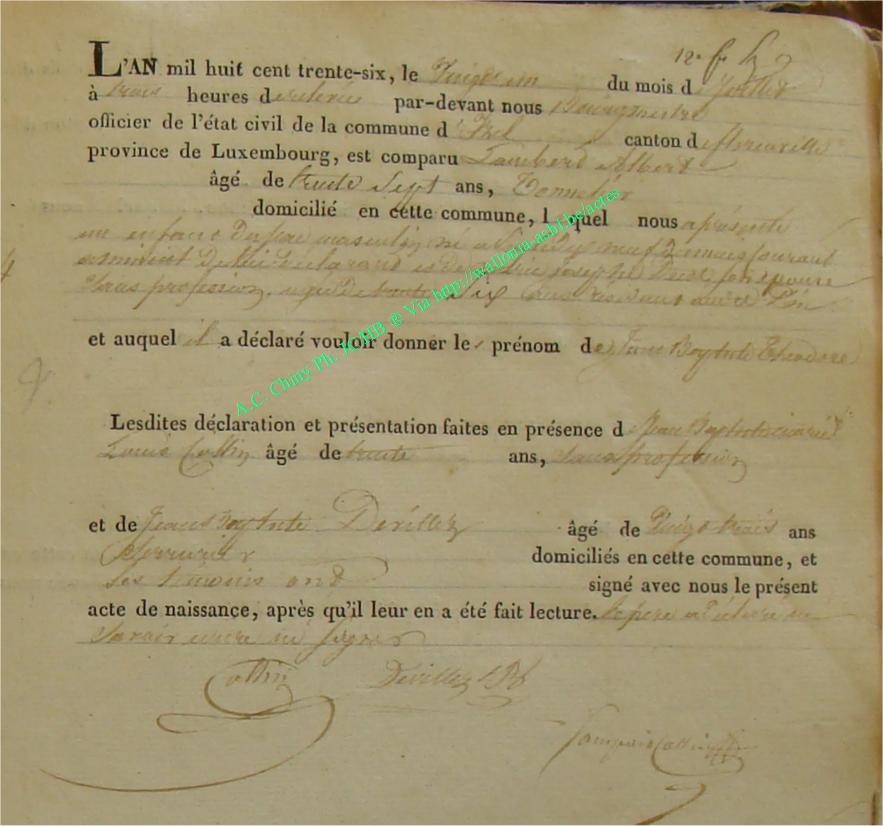 L'AN mil huit cent trente-six, le Vingt un du mois d e Juillet
à trois heures d e relevée par-devant nous Bourgmestre
officier de l'état civil de la commune d' Izel canton d e florenville
province de Luxembourg, est comparu Lambert Albert
âgé de trente Sept ans, Tonnelier
domicilié en cette commune, l quel nous a présenté
un enfant du sexe masculin, né à Izel dix neuf du mois courant
à minuit De lui déclarant et de Joseph son épouse
Sans profession, agée de trente Six ans
et auquel il a déclaré vouloir donner le s prénom de s Jean Baptiste Théodore
Lesdites déclaration et présentation faites en présence d e Jean Baptiste
Louis Collin âgé de trente ans, sans profession
et de Jean Baptiste Devillez âgé de Vingt trois ans
Serrurier domiciliés en cette commune, et
Les témoins ont signé avec nous le présent
acte de naissance, après qu'il leur en a été fait lecture. le père a déclaré ne
Savoir écrire ni signer
Collin Devillez JB
A.C. Chiny Ph. JCHB ® Via http://wallonia-asbl.be/actes